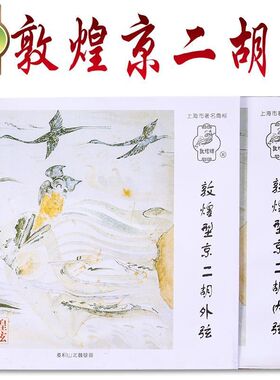 敦煌京二胡
上海市著名商标
敦煌牌
®
敦煌型京二胡外弦
上海市著
敦煌型京二胡内弦